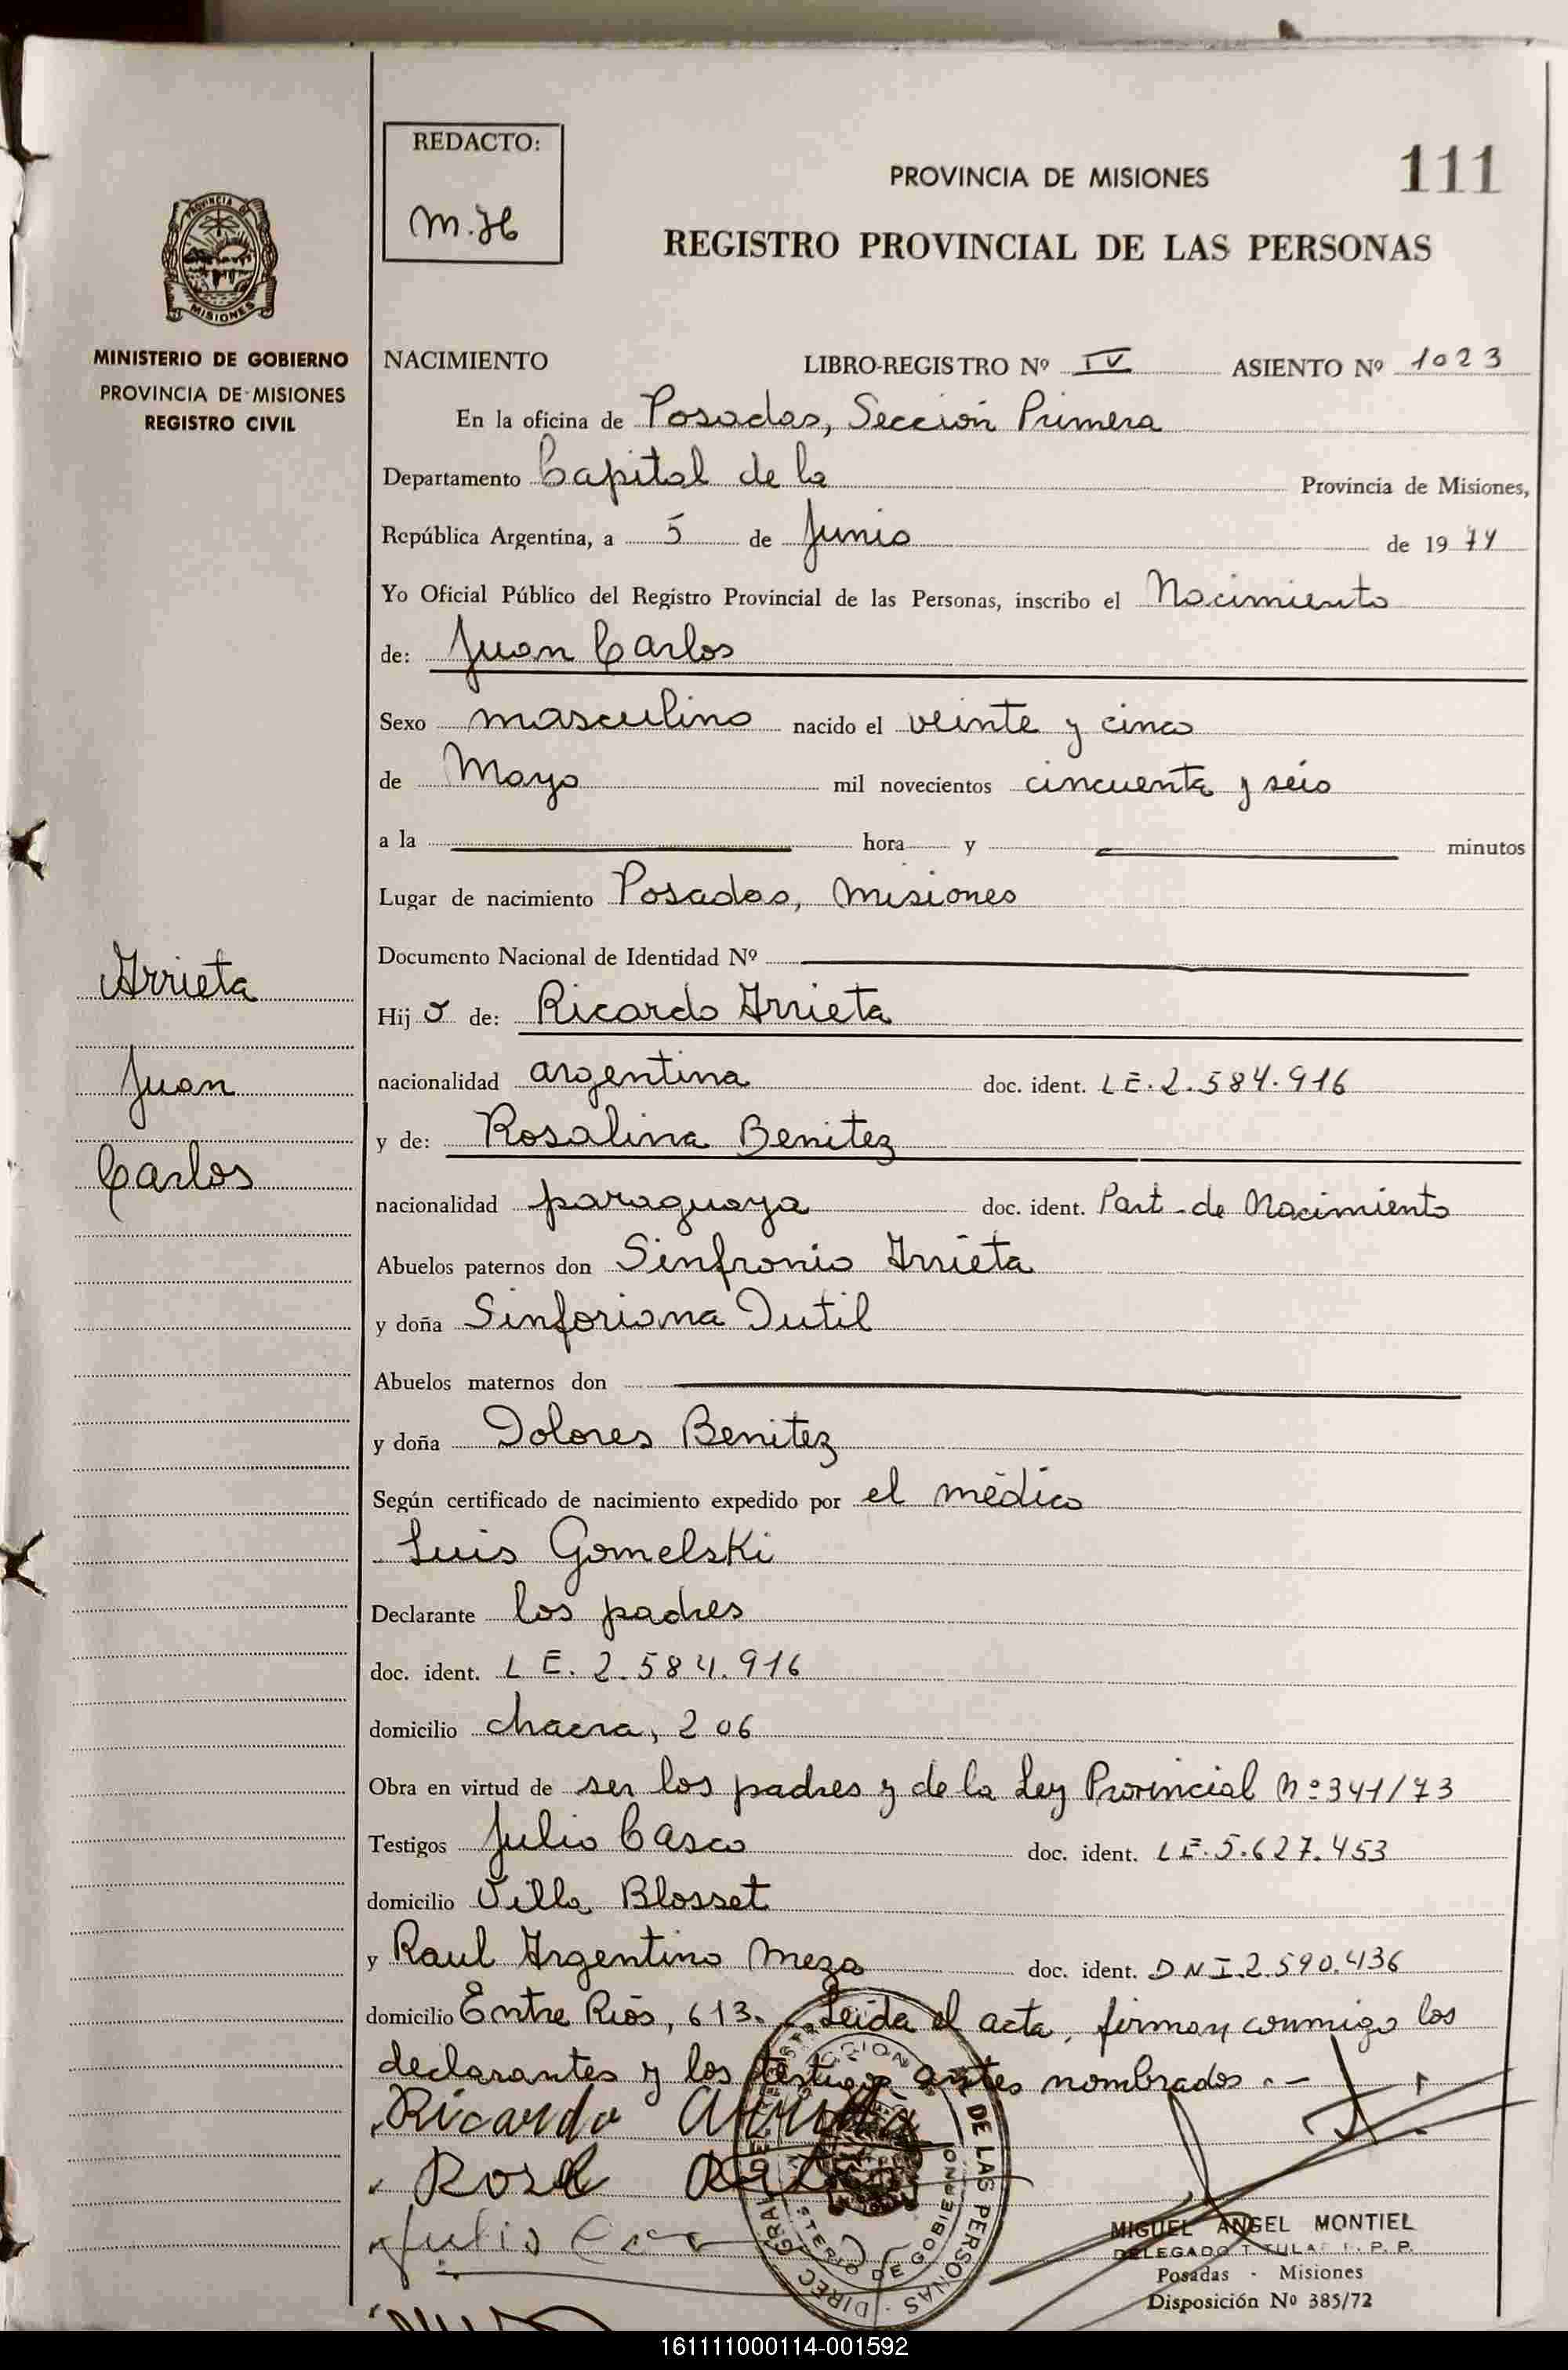 REDACTO:
M.H
PROVINCIA DE MISIONES
111
REGISTRO PROVINCIAL DE LAS PERSONAS
PROVINCIA DE
MISIONES
MINISTERIO DE GOBIERNO
PROVINCIA DE MISIONES
REGISTRO CIVIL
NACIMIENTO LIBRO-REGISTRO Nº IV ASIENTO Nº 1023
En la oficina de Posadas, Sección Primera
Departamento Capital de la Provincia de Misiones,
República Argentina, a 5 de Junio de 1974
Yo Oficial Público del Registro Provincial de las Personas, inscribo el Nacimiento
de: Juan Carlos
Sexo masculino nacido el veinte y cinco
de Mayo mil novecientos cincuenta y seis
a la hora y minutos
Lugar de nacimiento Posadas, Misiones
Documento Nacional de Identidad Nº
Arrieta
Juan
Carlos
Hijo de: Ricardo Arrieta
nacionalidad argentina doc. ident. LE. 2.584.916
y de: Rosalina Benitez
nacionalidad paraguaya doc. ident. Part. de Nacimiento
Abuelos paternos don Sinfronio Arrieta
y doña Sinforiana Dutil
Abuelos maternos don
y doña Dolores Benitez
Según certificado de nacimiento expedido por el médico
Luis Gomelski
Declarante los padres
doc. ident. L E. 2.584.916
domicilio chacra, 206
Obra en virtud de ser los padres y de la Ley Provincial Nº 341/73
Testigos Julio Casco doc. ident. LE. 5.627.453
domicilio Villa Blosset
y Raul Argentino Meza doc. ident. DNI. 2.590.436
domicilio Entre Rios, 613. Leida el acta, firman conmigo los
declarantes y los testigos antes nombrados.-
Ricardo Arrieta
Julio
DIREC GRAL DE LAS PERSONAS
MINISTERIO DE GOBIERNO
MIGUEL ANGEL MONTIEL
DELEGADO TITULAR R. P. P.
Posadas - Misiones
Disposición Nº 385/72
161111000114-001592